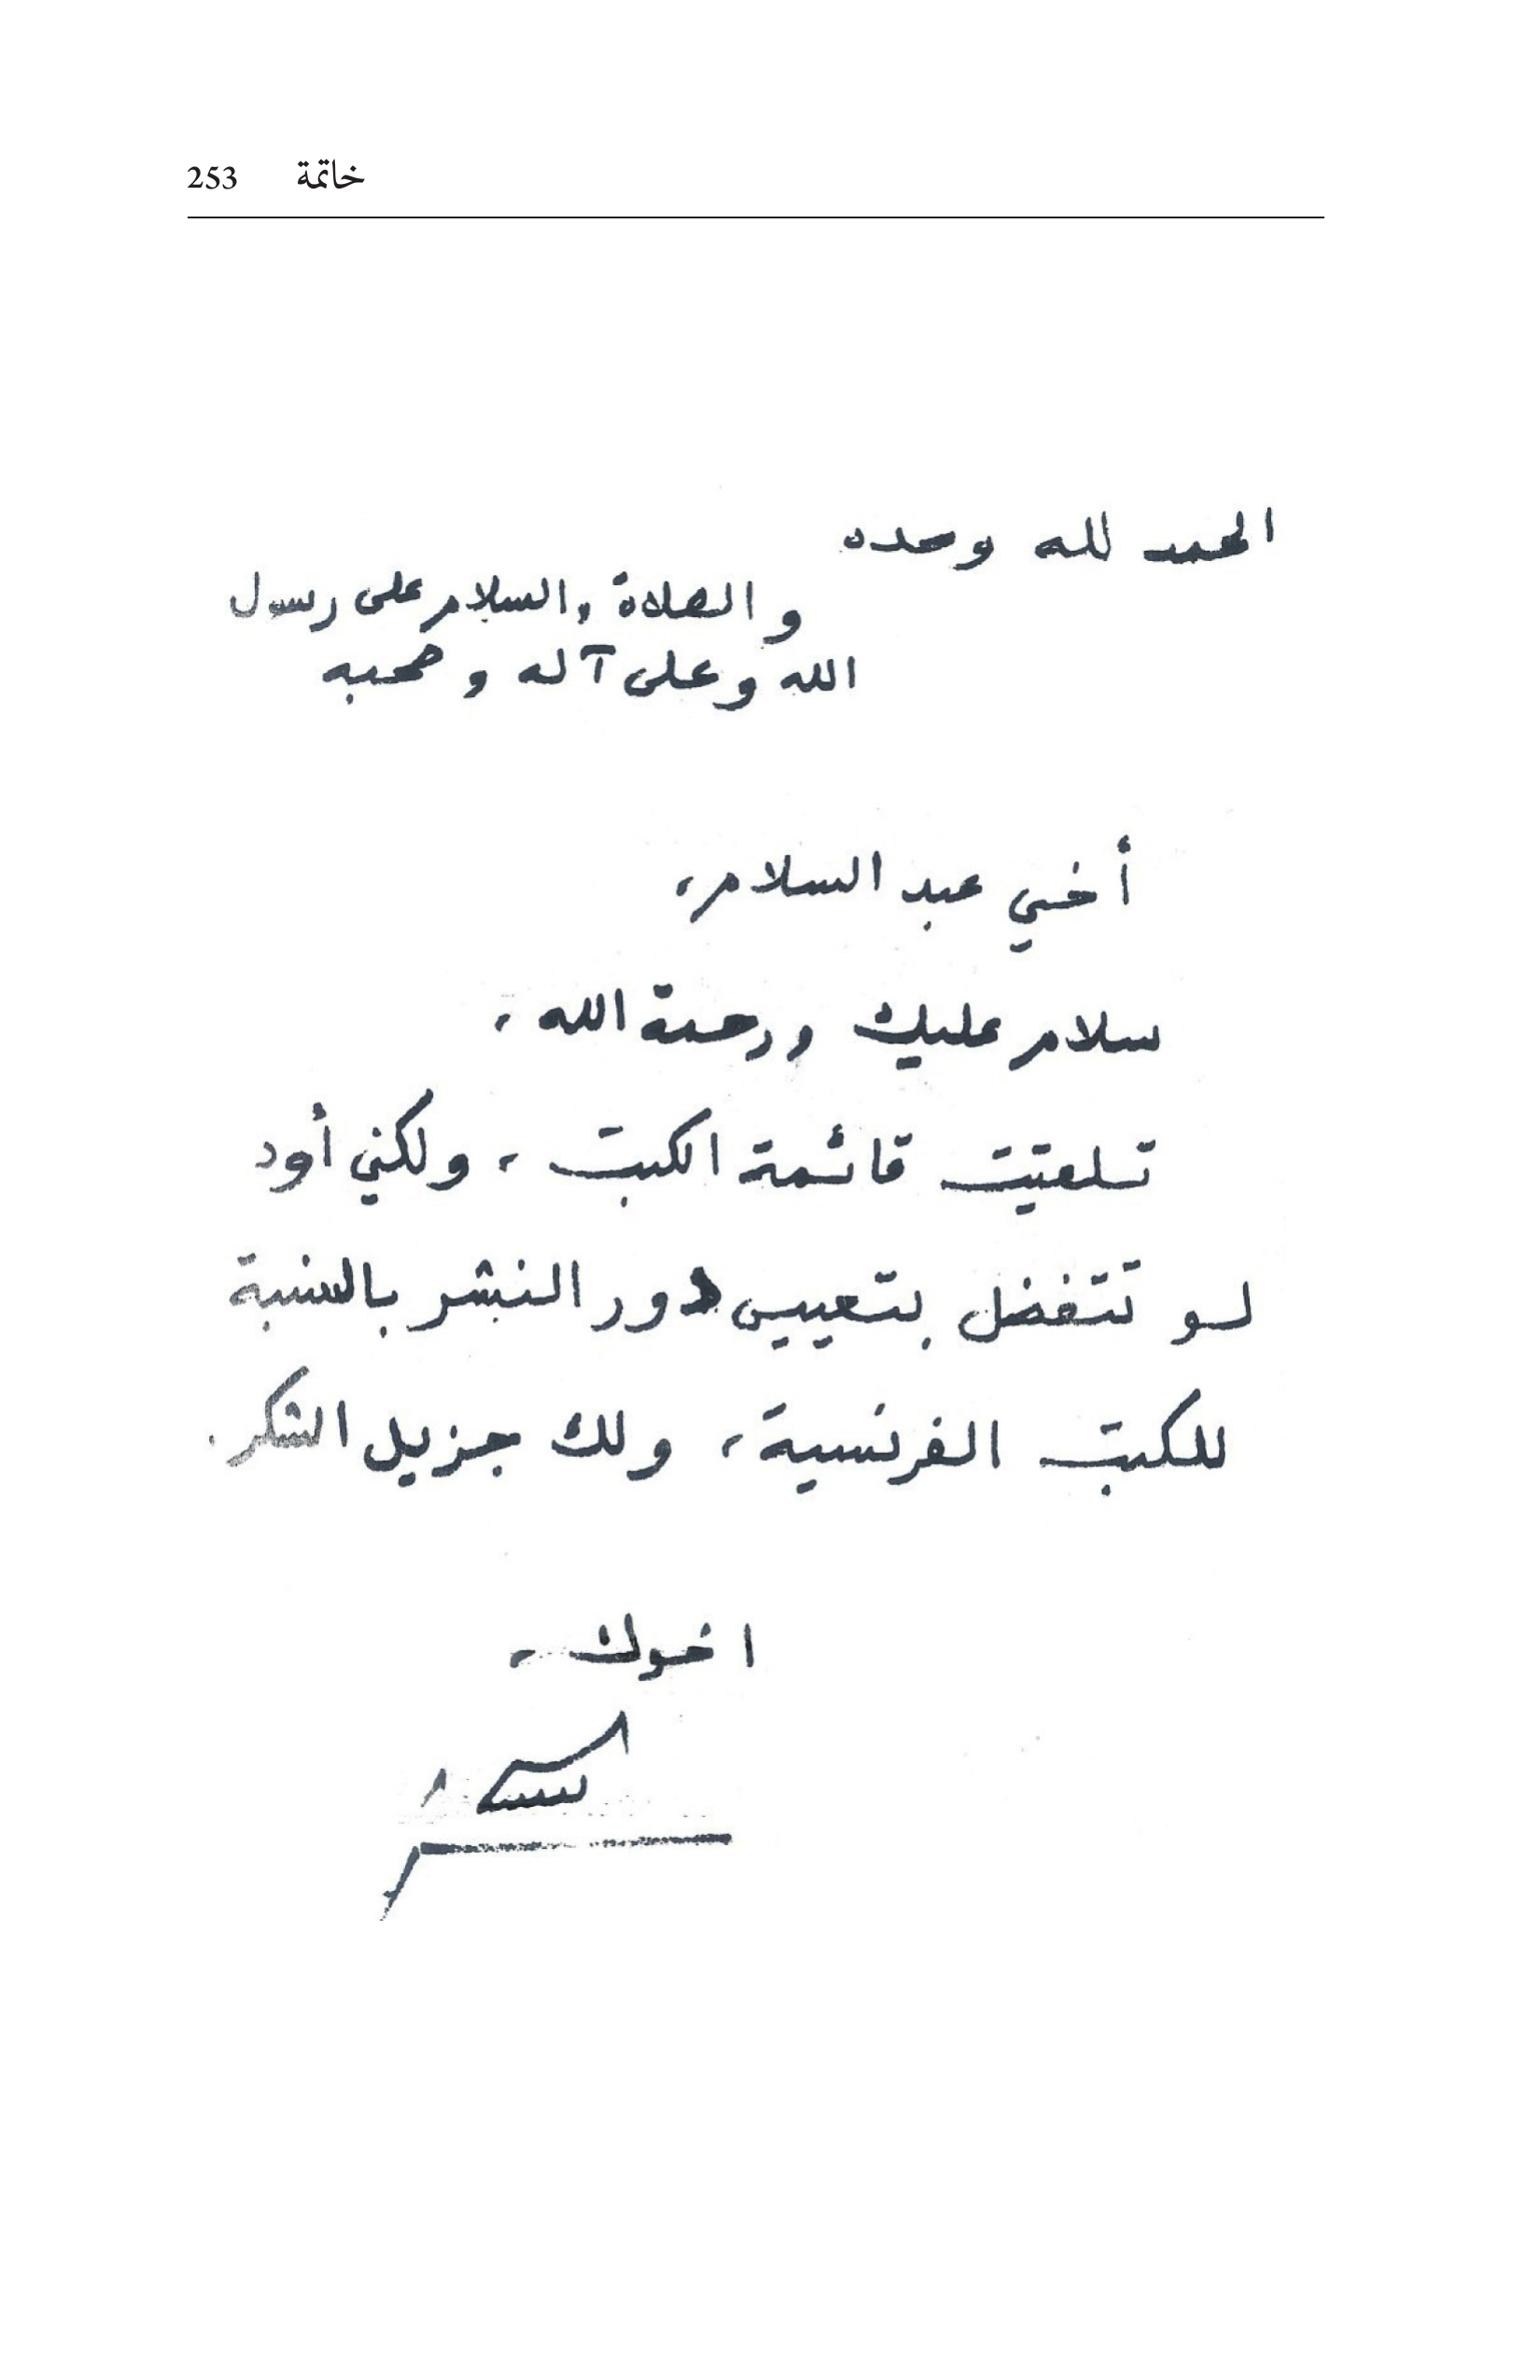 خاتمة 253
الحمد لله وحده
والصلاة والسلام على رسول
الله وعلى آله وصحبه
أخي عبد السلام،
سلام عليك ورحمة الله،
تلقيت قائمة الكتب، ولكني أود
لو تتفضل بتعيين دور النشر بالنسبة
للكتب الفرنسية، ولك جزيل الشكر.
اخوك،